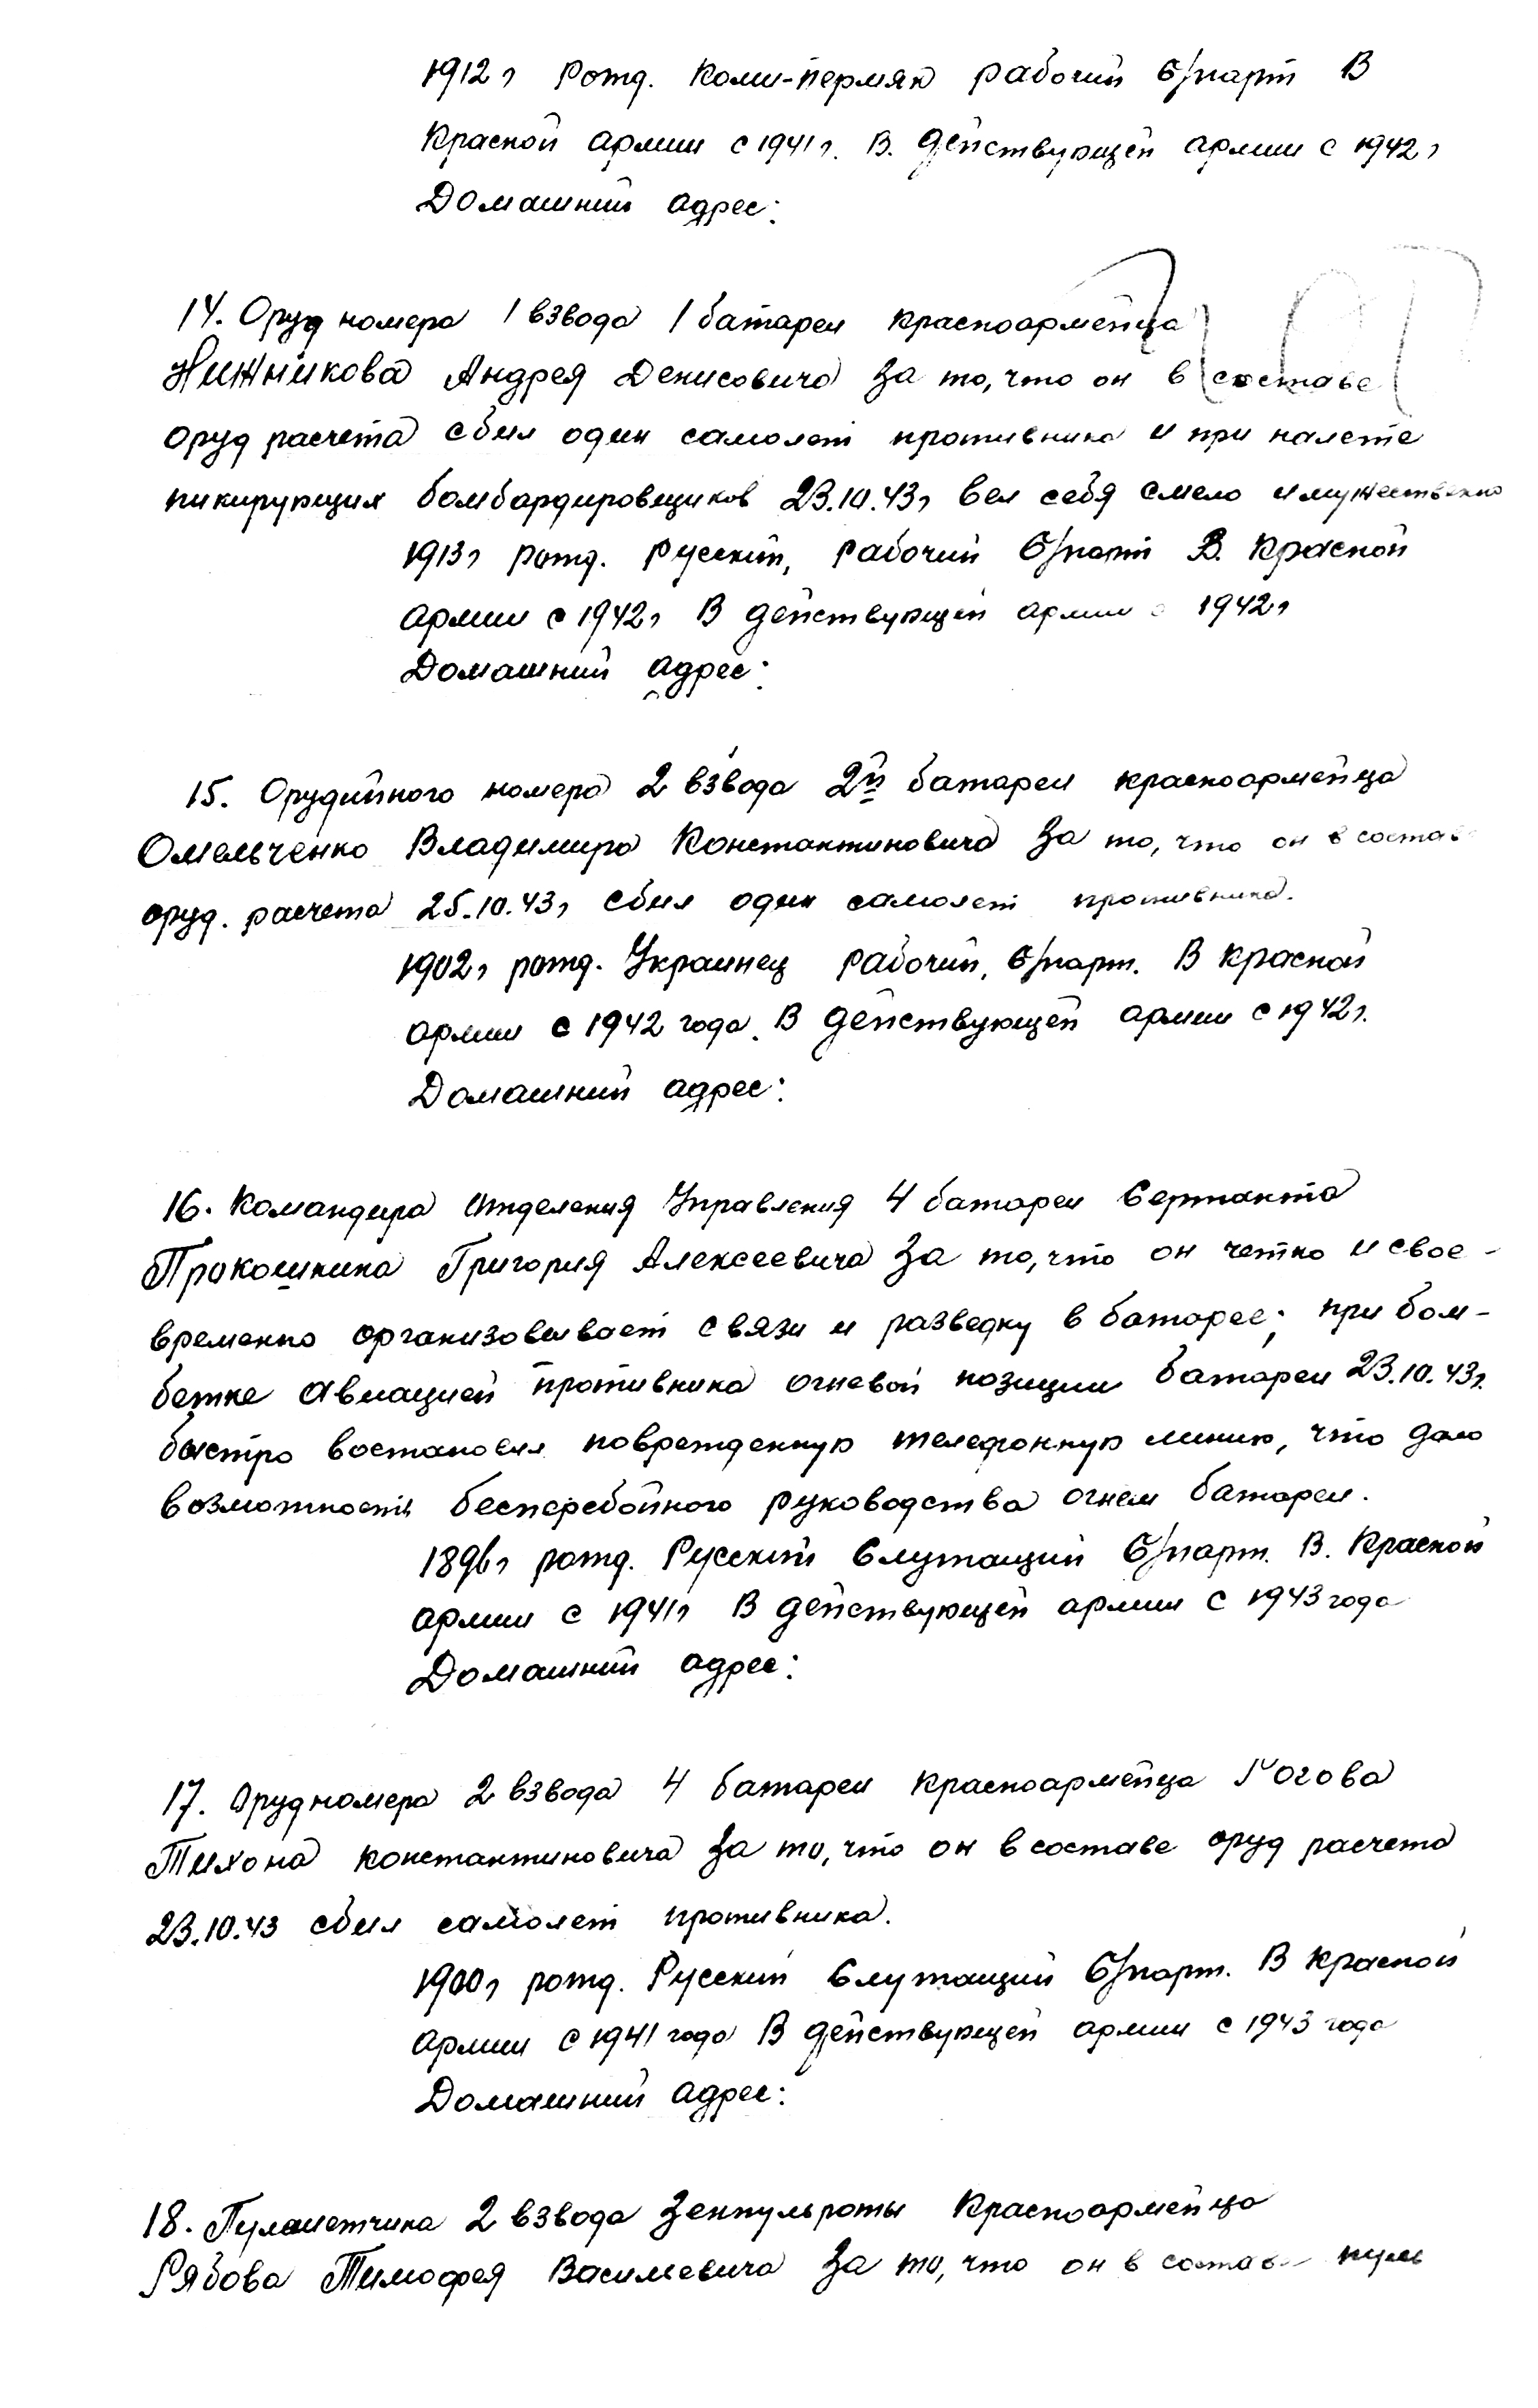 1912г рожд. Коми-пермяк рабочий б/парт В
Красной армии с 1941г. В. действующей армии с 1942г
Домашний адрес:
14. Оруд номера 1 взвода 1 батареи красноармейца
Нижникова Андрея Денисовича за то, что он в составе
оруд расчета сбил один самолет противника и при налете
пикирующих бомбардировщиков 23.10.43г вел себя смело и мужественно
1913г рожд. Русский, рабочий б/парт В. Красной
армии с 1942г В действующей армии с 1942г
Домашний адрес:
15. Орудийного номера 2 взвода 2й батареи красноармейца
Омельченко Владимира Константиновича за то, что он в состав
оруд. расчета 25.10.43г сбил один самолет противника.
1902г рожд. Украинец рабочий, б/парт. В Красной
армии с 1942 года. В действующей армии с 1942г.
Домашний адрес:
16. Командира Отделения Управления 4 батареи Сержанта
Прокошкина Григория Алексеевича за то, что он четко и свое-
временно организовывает связи и разведку в батарее; при бом-
бежке Авиацией противника огневой позиции батареи 23.10.43г.
быстро востановил поврежденную телефонную линию, что дало
возможность бесперебойного руководства огнем батареи.
1896г рожд. Русский Служащий б/парт. В. Красной
армии с 1941г В действующей армии с 1943 года
Домашний адрес:
17. Оруд номера 2 взвода 4 батареи красноармейца Рогова
Тихона Константиновича за то, что он в составе оруд расчета
23.10.43 сбил самолет противника.
1900г рожд. Русский Служащий б/парт. В Красной
армии с 1941 года В действующей армии с 1943 года
Домашний адрес:
18. Пулеметчика 2 взвода Зенпульроты Красноармейца
Рябова Тимофея Василиевича за то, что он в составе пуль